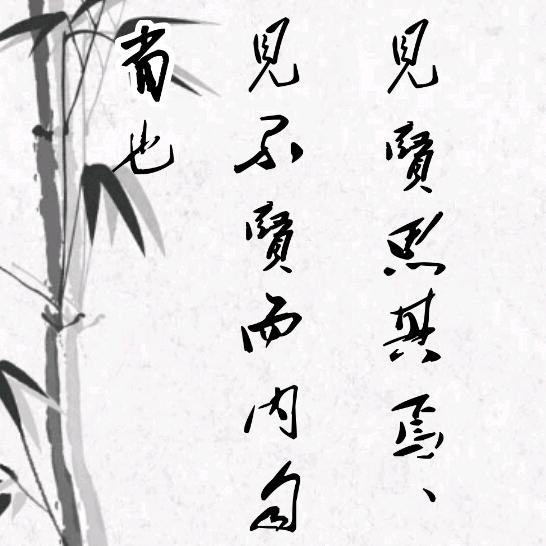 見賢思其焉、
見不賢而内自
省也